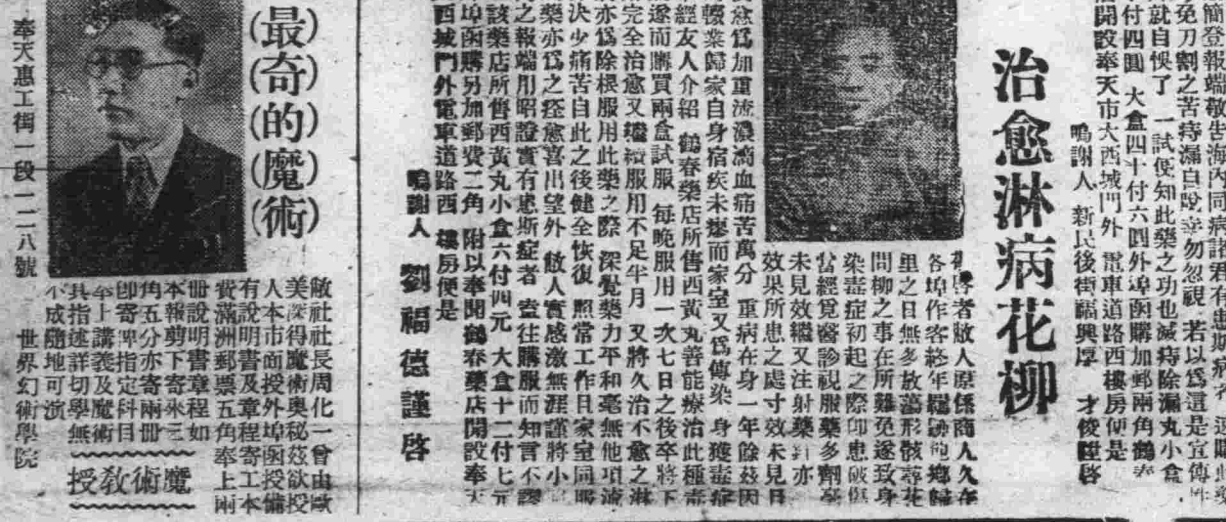 免刀割之苦痔漏自脫幸勿忽視 若以爲這是宣傳性
就自悞了 一試便知此藥之功也滅痔除漏丸小盒
付四圓 大盒四十付六圓外埠函購加郵兩角鶴春
開設奉天市大西城門外 電車道路西樓房便是
鳴謝人 新民後街福興厚 才俊陞啓
治愈淋病花柳
啓者敝人原係商人久在
各埠作客終年
里之日無多放蕩形骸尋花
問柳之事在所難免遂致身
染毒症初起之際卽患破傷
當經覓醫診視服藥多劑毫
未見效繼又注射藥針亦
效果所患之處寸效未見日
愈爲加重流濃滴血痛苦萬分 重病在身一年餘茲因
輟業歸家自身宿疾未瘳而家室又爲傳染 身獲毒症
經友人介紹 鶴春藥店所售西黃丸善能療治此種毒
遂而購買兩盒試服 每晚服用一次七日之後卒將下
完全治愈又繼續服用不足半月 又將久治不愈之淋
亦爲除根服用此藥之際 深覺藥力平和毫無他項流
決少痛苦自此之後健全恢復 照常工作日家室同服
藥亦爲之痊愈喜出望外 敝人實感激無涯謹將小
之報端用昭證實有患斯症者 盍往購服而知言不謬
該藥店所售西黃丸小盒六付四元 大盒十二付七元
埠函購另加郵費二角 附以奉聞鶴春藥店開設奉天
西城門外電車道路西 樓房便是
鳴謝人 劉福德謹啓
(最)(奇)(的)(魔)(術)
敝社社長周化一曾由歐
美深得魔術奧秘茲欲授
人本市面授外埠函授備
有說明書及章程寄工本
費滿洲郵票五角奉上兩
冊說明書章程如
本報剪下寄來三
角五分亦寄兩冊
卽寄 指定科目
奉上講義及魔術
具指述詳切學無
不成隨地可演
魔術教授
世界幻術學院
奉天惠工街一段一二八號